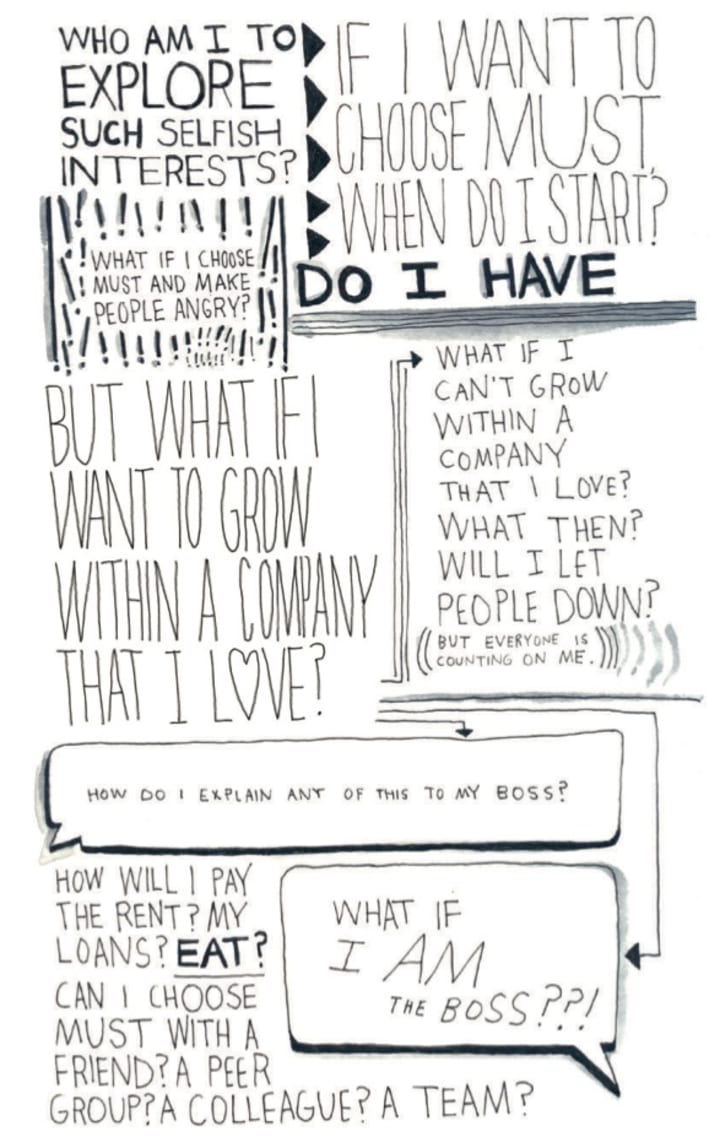 WHO AM I TO
EXPLORE
SUCH SELFISH
INTERESTS?
IF I WANT TO
CHOOSE MUST,
WHEN DO I START?
! WHAT IF I CHOOSE
! MUST AND MAKE
PEOPLE ANGRY?
DO I HAVE
BUT WHAT IF I
WANT TO GROW
WITHIN A COMPANY
THAT I L♡VE?
WHAT IF I
CAN'T GROW
WITHIN A
COMPANY
THAT I LOVE?
WHAT THEN?
WILL I LET
PEOPLE DOWN?
((BUT EVERYONE IS
COUNTING ON ME.))))
HOW DO I EXPLAIN ANY OF THIS TO MY BOSS?
HOW WILL I PAY
THE RENT? MY
LOANS? EAT?
CAN I CHOOSE
MUST WITH A
FRIEND? A PEER
GROUP? A COLLEAGUE? A TEAM?
WHAT IF
I AM
THE BOSS??!